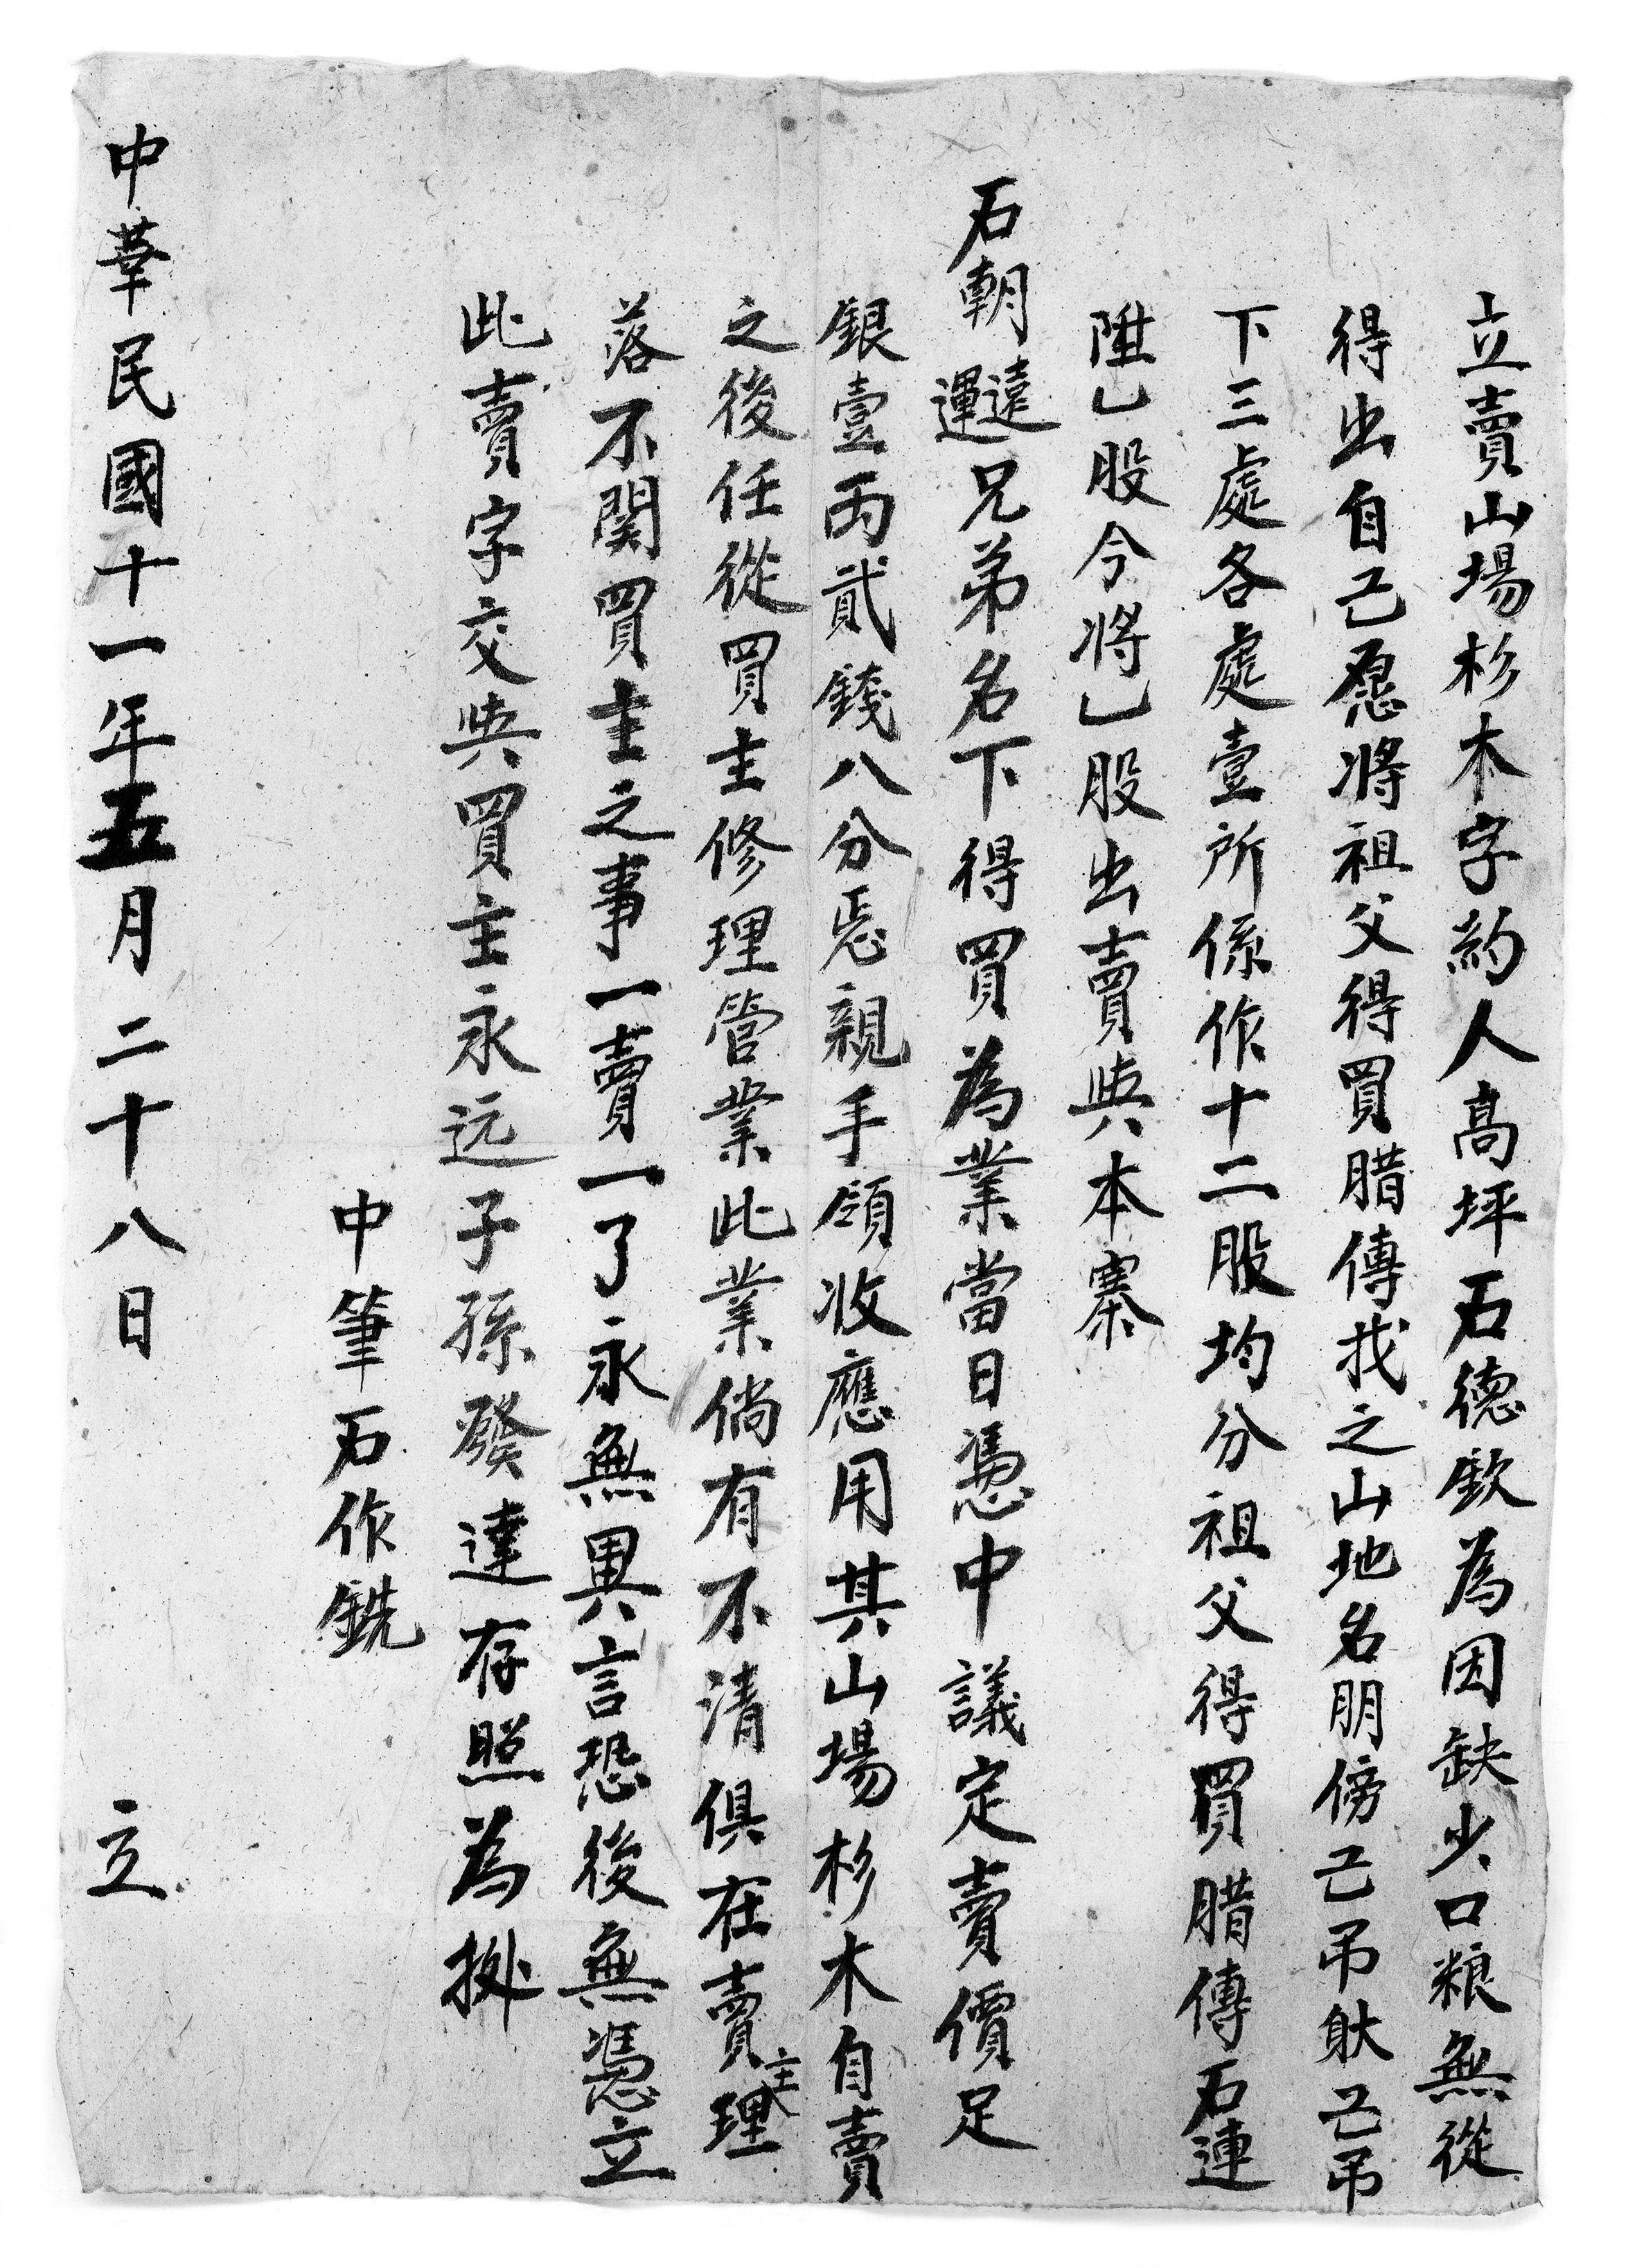 立賣山場杉木字約人高坪石德欽為因缺少口粮無從
得出自己愿將祖父得買腊傳找之山地名朋傍已吊㽷已吊
下三處各處壹所係作十二股均分祖父得買腊傳石連
陞乚股今將乚股出賣與本寨
石朝遠運兄弟名下得買為業當日憑中議定賣價足
銀壹両貳錢八分㤅親手領收應用其山場杉木自賣
之後任從買主修理管業此業倘有不清俱在賣主理
落不関買主之事一賣一了永無異言恐後無憑立
此賣字交與買主永远子孫發達存照為㨿
中筆石作銑
中華民國十一年五月二十八日 立